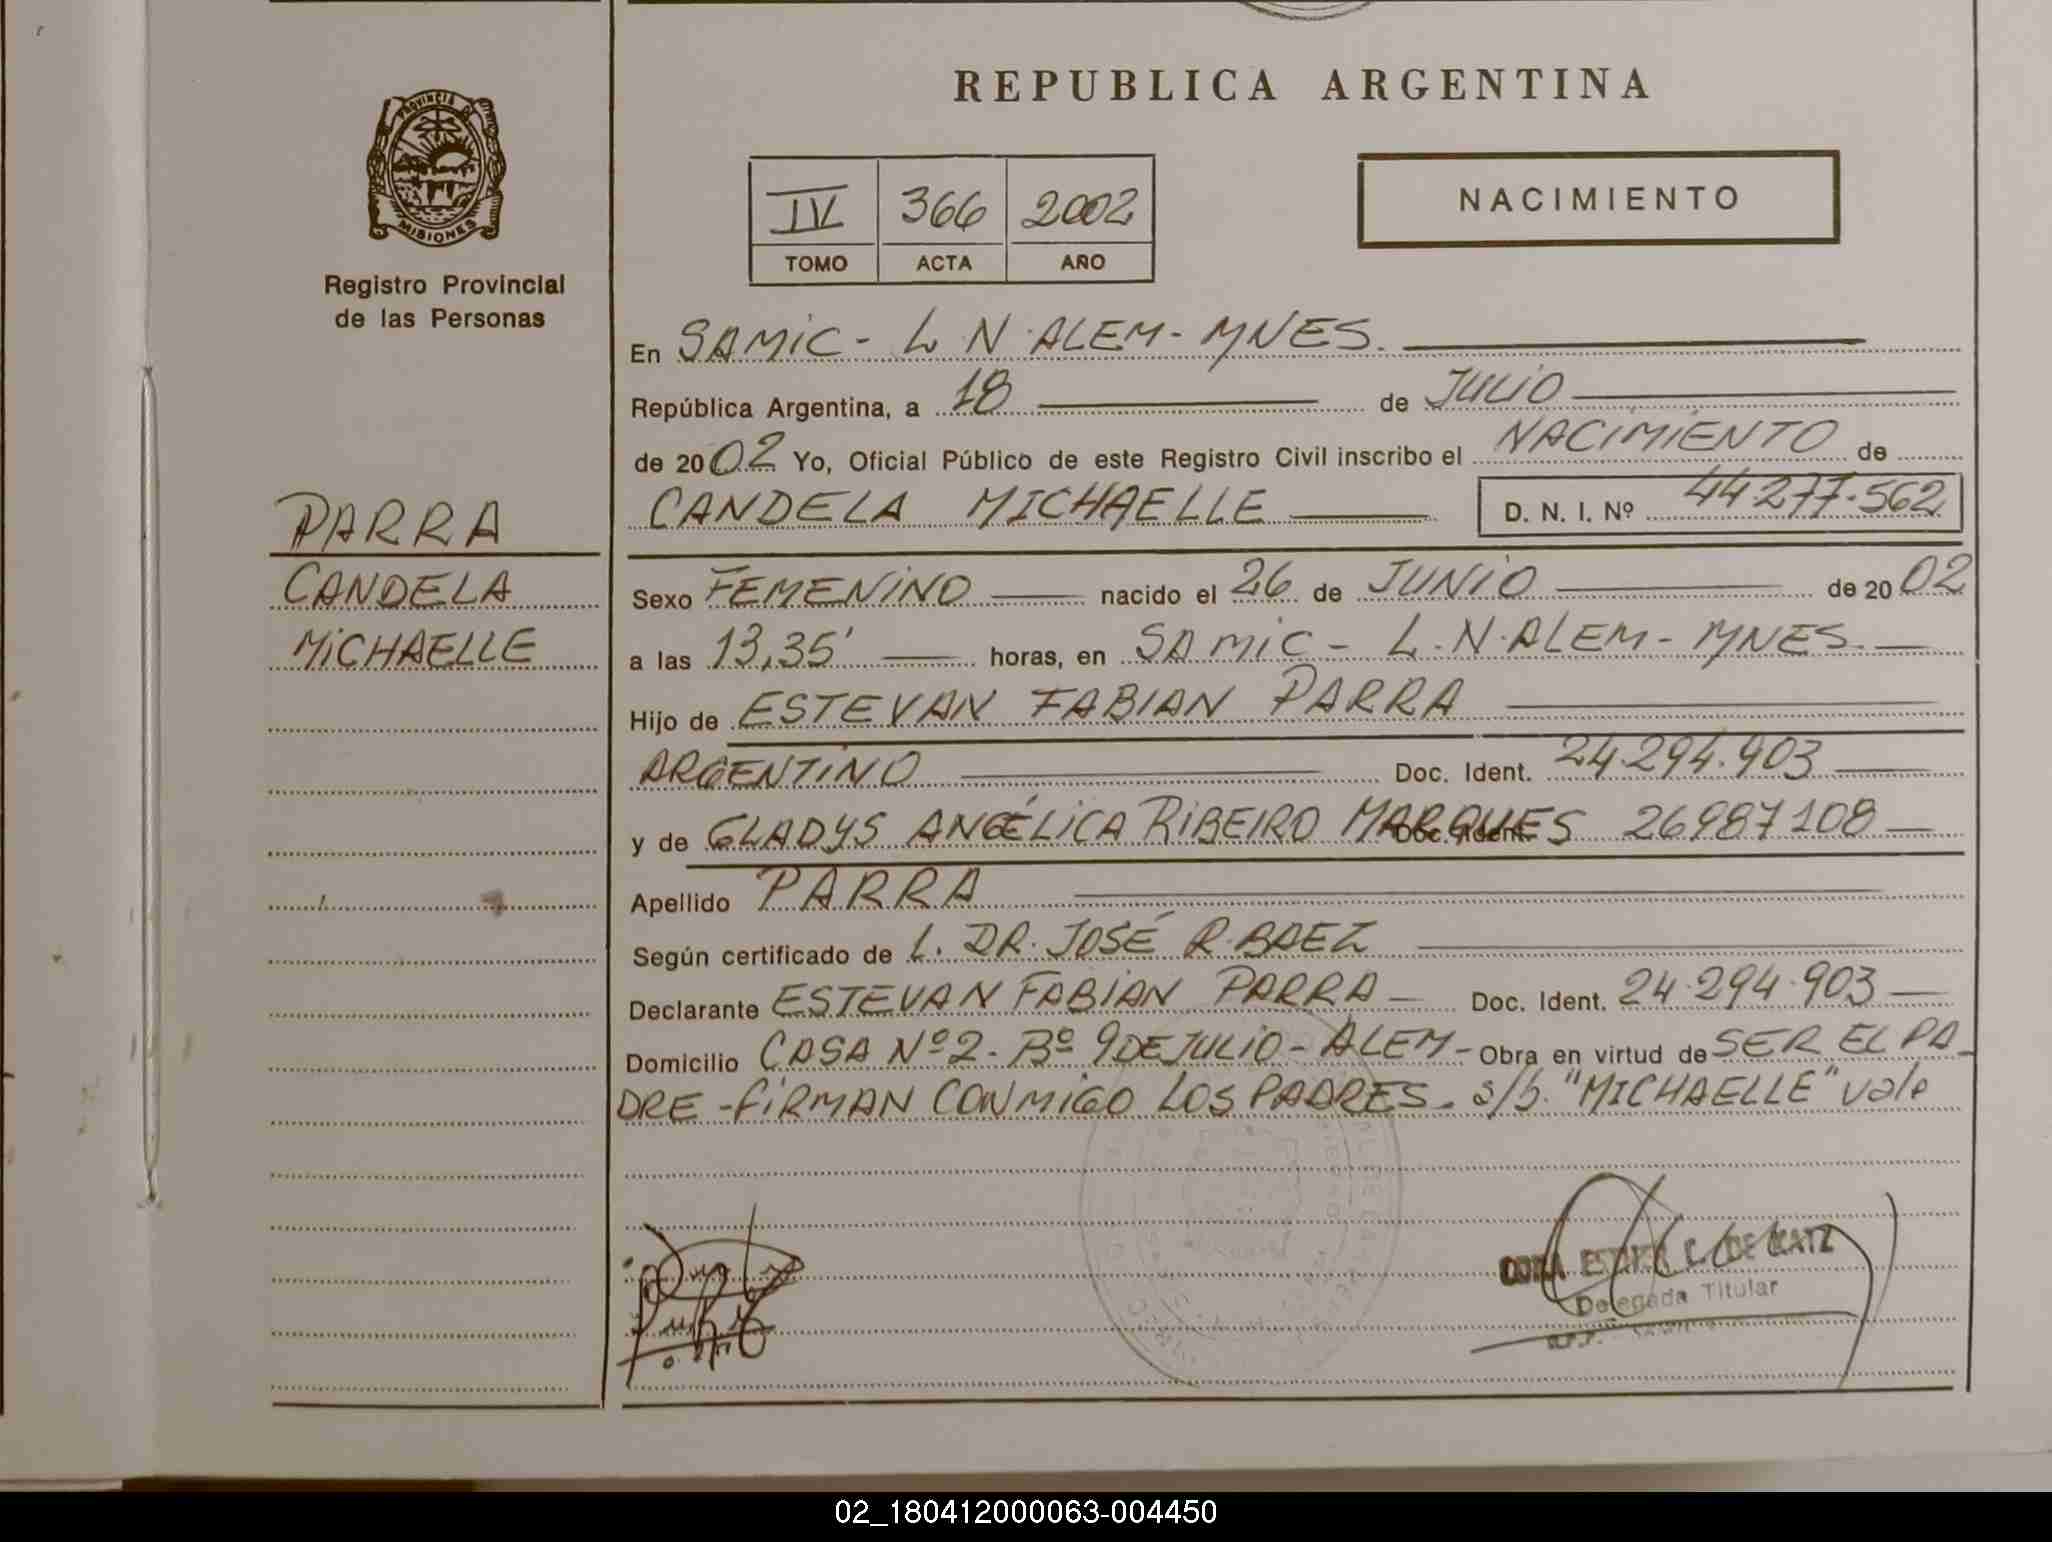 REPUBLICA ARGENTINA
PROVINCIA DE
MISIONES
Registro Provincial
de las Personas
IV 366 2002
TOMO ACTA AÑO
NACIMIENTO
PARRA
CANDELA
MICHAELLE
En SAMIC - L. N. ALEM - MNES.
República Argentina, a 18 de JULIO
de 2002 Yo, Oficial Público de este Registro Civil inscribo el NACIMIENTO de
CANDELA MICHAELLE D. N. I. Nº 44277.562
Sexo FEMENINO nacido el 26 de JUNIO de 2002
a las 13,35' horas, en SAMIC - L. N. ALEM - MNES.
Hijo de ESTEVAN FABIAN PARRA
ARGENTINO Doc. Ident. 24.294.903
y de GLADYS ANGÉLICA RIBEIRO MARQUES Doc. Ident. 26987108
Apellido PARRA
Según certificado de L. DR. JOSÉ R. BAEZ
Declarante ESTEVAN FABIAN PARRA Doc. Ident. 24.294.903
Domicilio CASA Nº 2 - Bº 9 DE JULIO - ALEM - Obra en virtud de SER EL PA-
DRE - FIRMAN CONMIGO LOS PADRES. s/b. "MICHAELLE" vale
DE KATZ
Delegada Titular
02_180412000063-004450